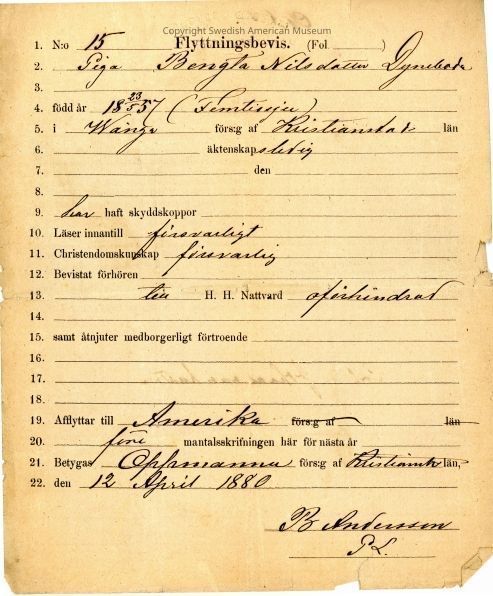 Copyright Swedish American Museum
1. N:o 15 Flyttningsbevis. (Fol )
2. Piga Bengta Nilsdotter Dyneboda
3.
4. född år 18 23/5 57 (Femtisju)
5. i Wånga förs:g af Kristianstads län
6. äktenskap. ledig
7. den
8.
9. har haft skyddskoppor
10. Läser innantill försvarligt
11. Christendomskunskap försvarlig
12. Bevistat förhören
13. till H. H. Nattvard oförhindrad
14.
15. samt åtnjuter medborgerligt förtroende
16.
17.
18.
19. Afflyttar till Amerika förs:g af län
20. före mantalsskrifningen här för nästa år
21. Betygas Oppmanna förs:g af Kristianst: län,
22. den 12 April 1880
B Andersson
P.L.